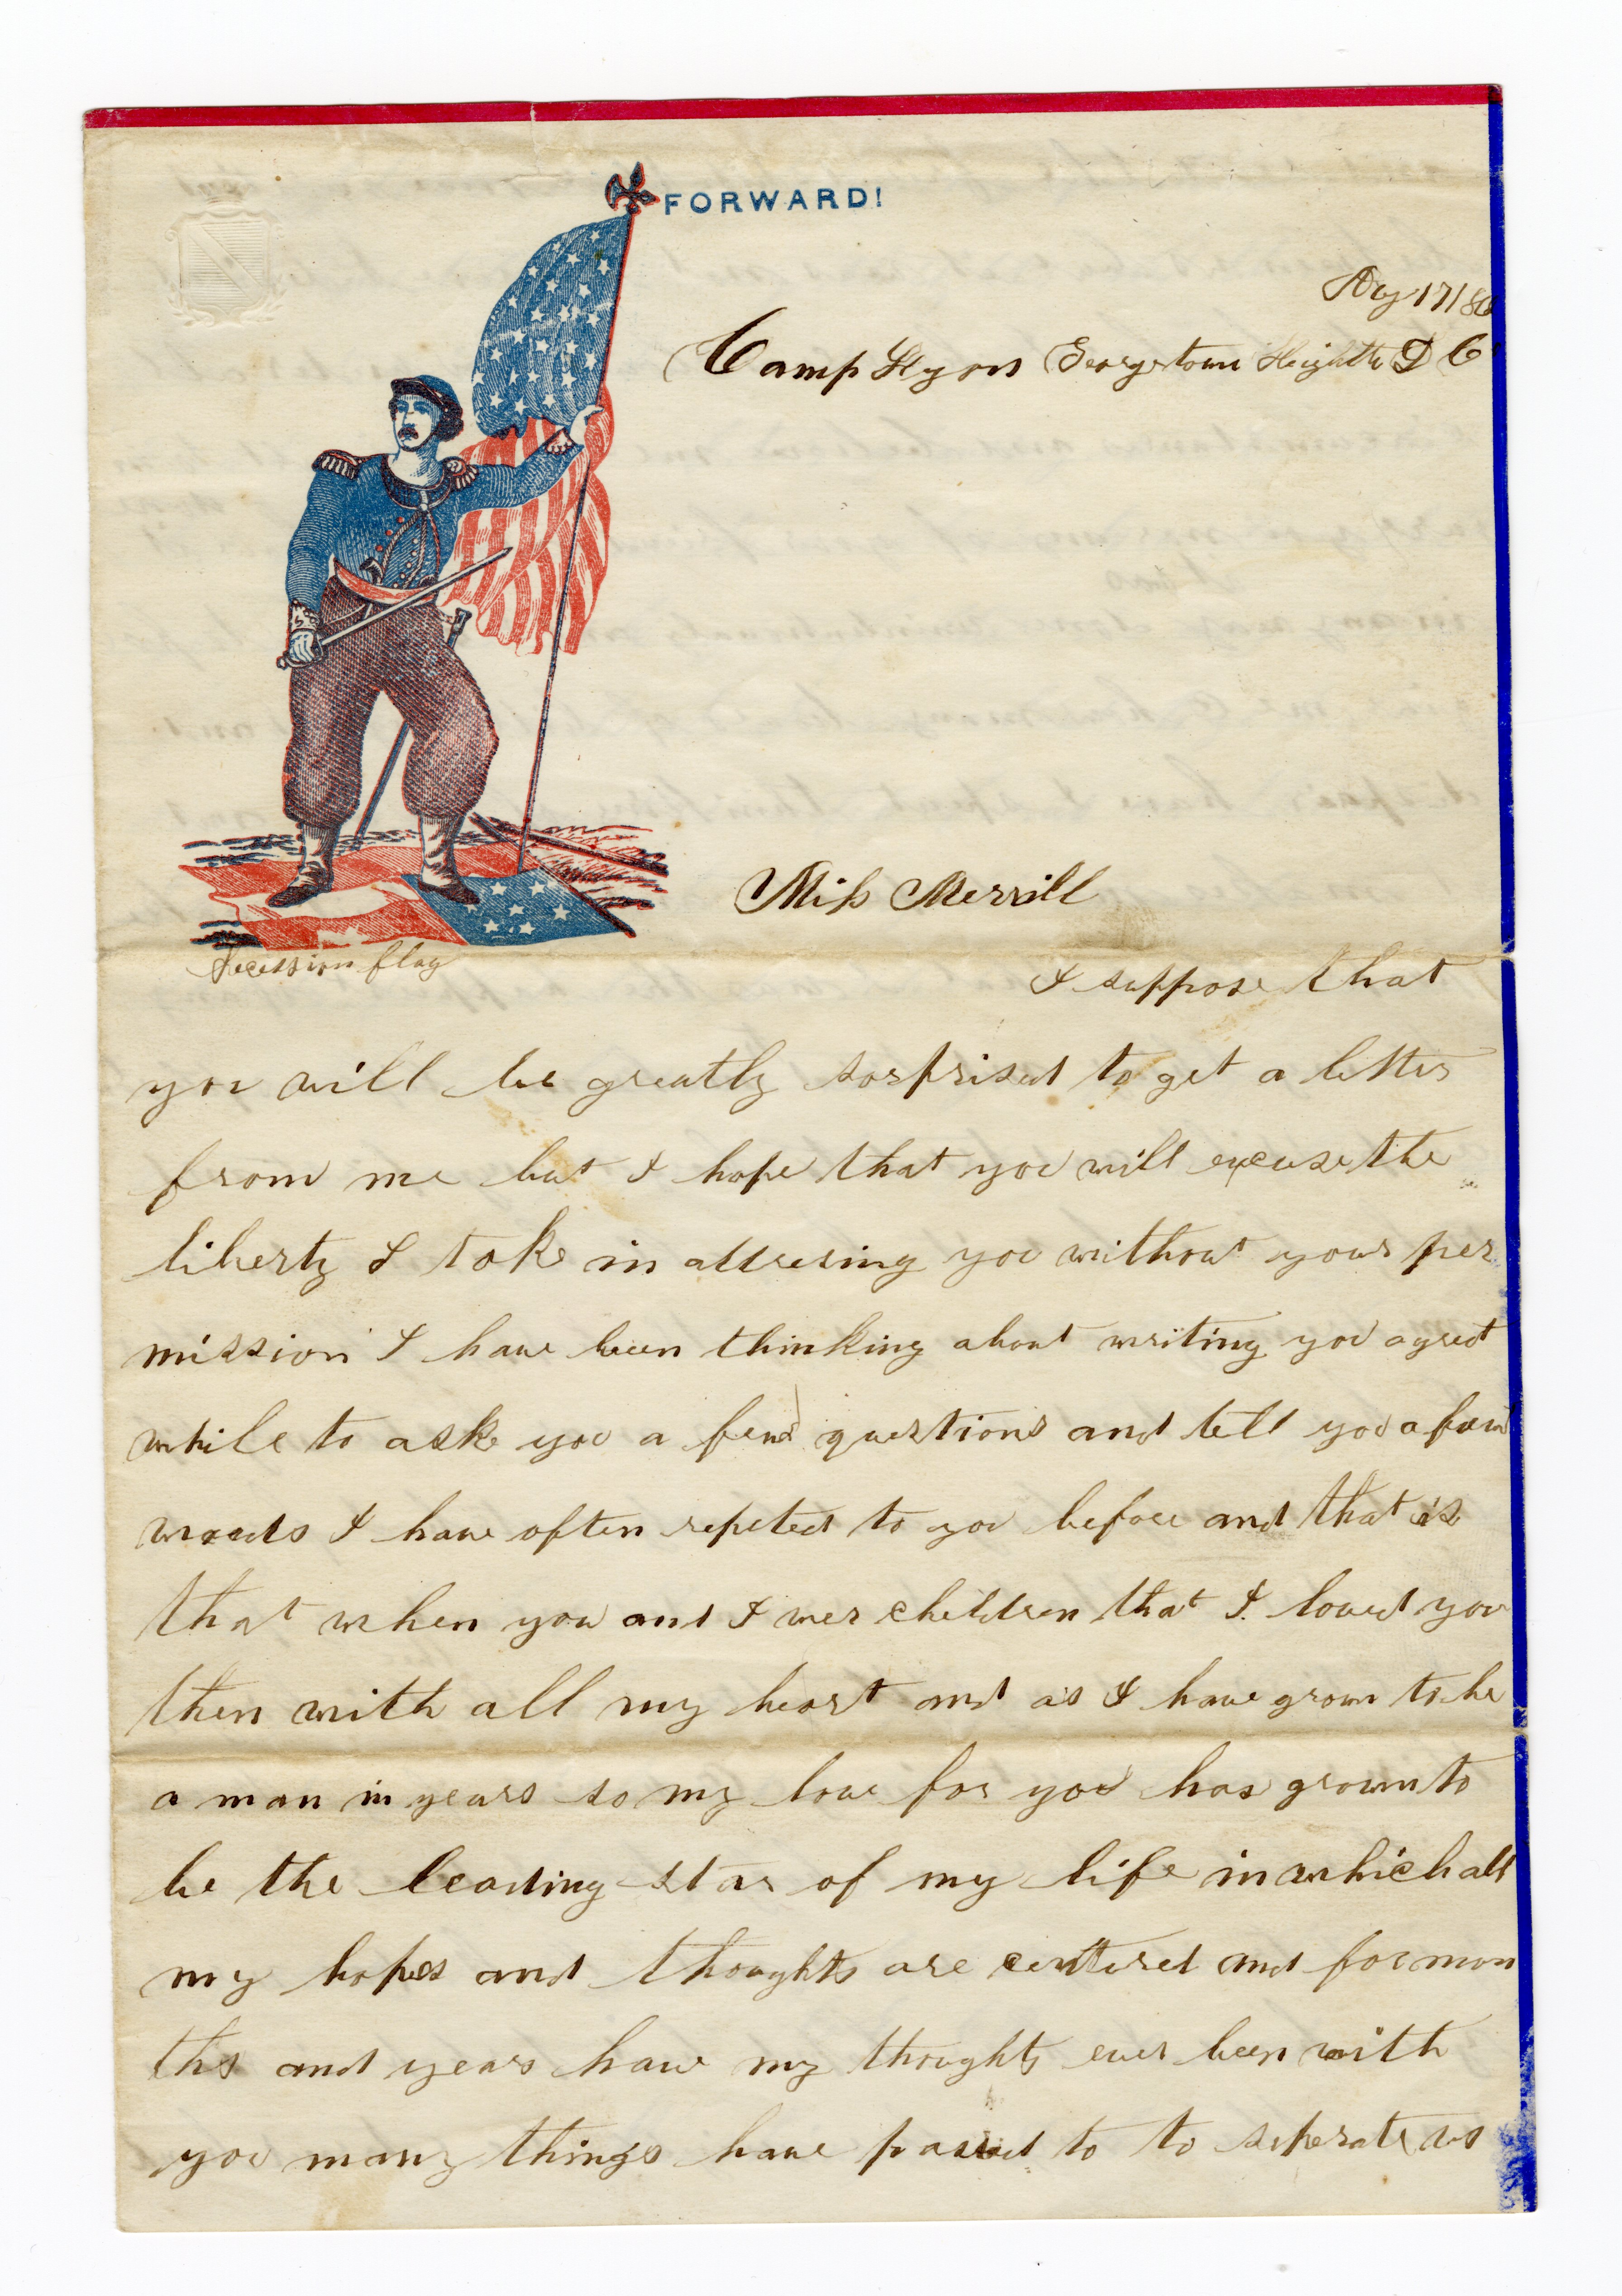 FORWARD!
Aug 17 186
Camp Lyons Georgetown Heights D C
Miss Merrill
Secession flag
I suppose that
you will be greatly sorprised to get a letter
from me but I hope that you will excuse the
liberty I take in adresing you without your per
mission I have been thinking about writing you a great
while to ask you a few questions and tell you a few
words I have often repeted to you before and that is
that when you and I wer children that I loved you
then with all my heart and as I have grown to be
a man in years so my love for you has grown to
be the leading star of my life in which all
my hopes and thoughts are centered and for mon
ths and years have my thoughts ever been with
you many things have passed to to seperate us